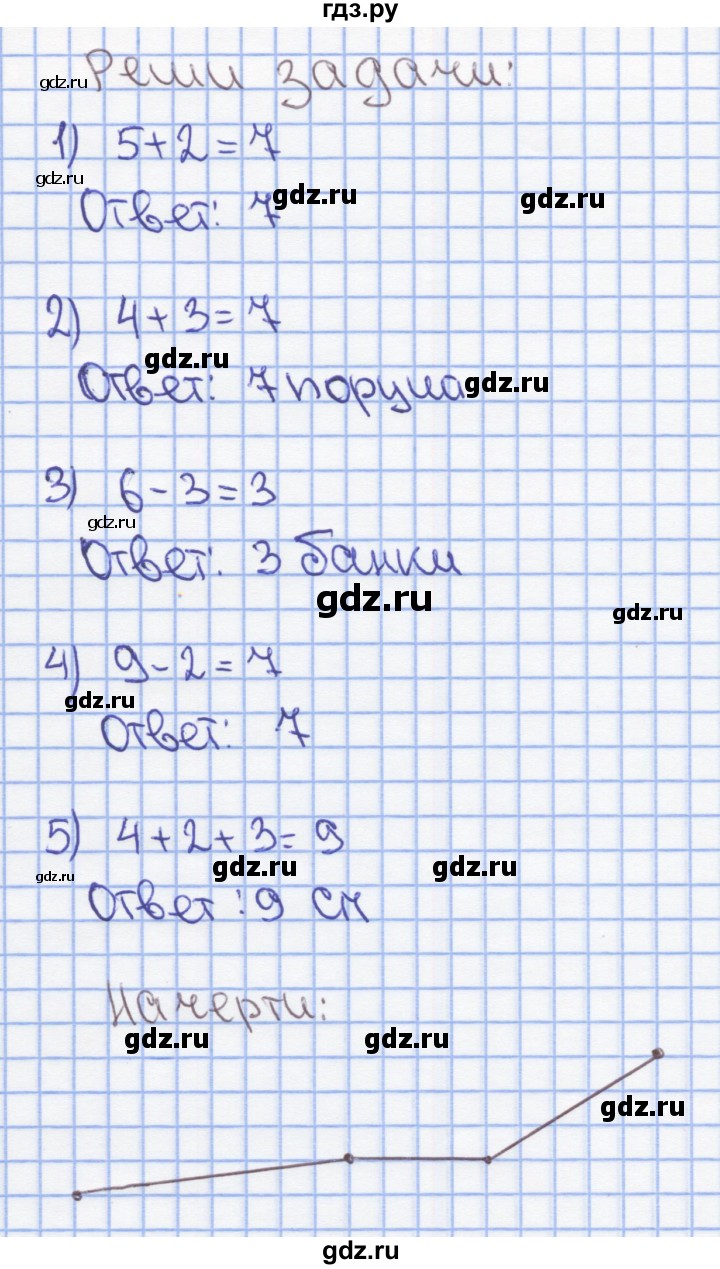 гдз.ру
Реши задачи:
gdz.ru
1) 5+2=7
gdz.ru
Ответ: 7
gdz.ru
gdz.ru
2) 4+3=7
gdz.ru
Ответ: 7
gdz.ru
3) 6-3=3
gdz.ru
Ответ: 3 банки
gdz.ru
gdz.ru
4) 9-2=7
gdz.ru
Ответ: 7
5) 4+2+3=9
gdz.ru
gdz.ru
gdz.ru
Ответ: 9 см
Начерти:
gdz.ru
gdz.ru
gdz.ru
gdz.ru